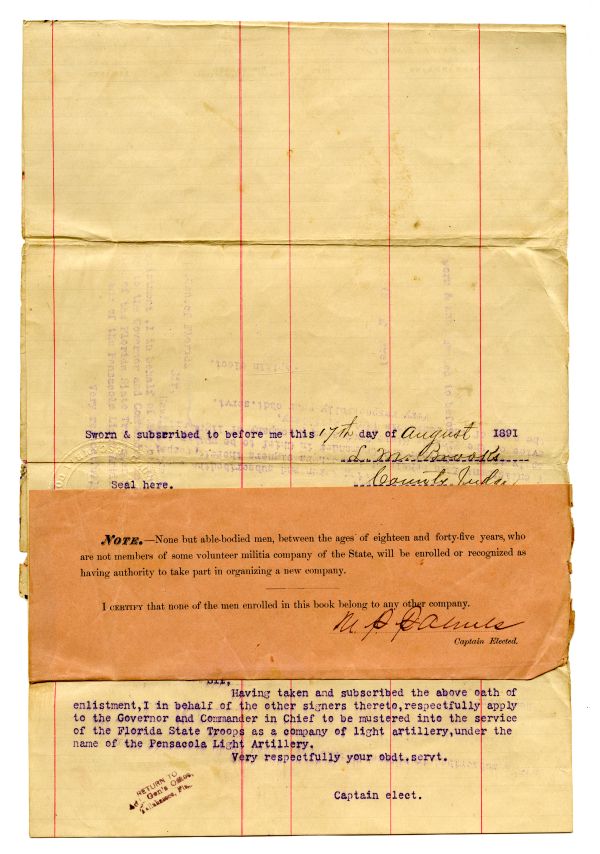 Sworn & subscribed to before me this 17th day of August 1891
L. M. Brooks
County Judge
Seal here.
NOTE.—None but able-bodied men, between the ages of eighteen and forty-five years, who
are not members of some volunteer militia company of the State, will be enrolled or recognized as
having authority to take part in organizing a new company.
I CERTIFY that none of the men enrolled in this book belong to any other company.
Captain Elected.
SIR,
Having taken and subscribed the above oath of
enlistment,I in behalf of the other signers thereto,respectfully apply
to the Governor and Commander in Chief to be mustered into the service
of the Florida State Troops as a company of light artillery,under the
name of the Pensacola Light Artillery.
Very respectfully your obdt.servt.
RETURN TO
Adj. Gen's Office,
Tallahassee, Fla.
Captain elect.